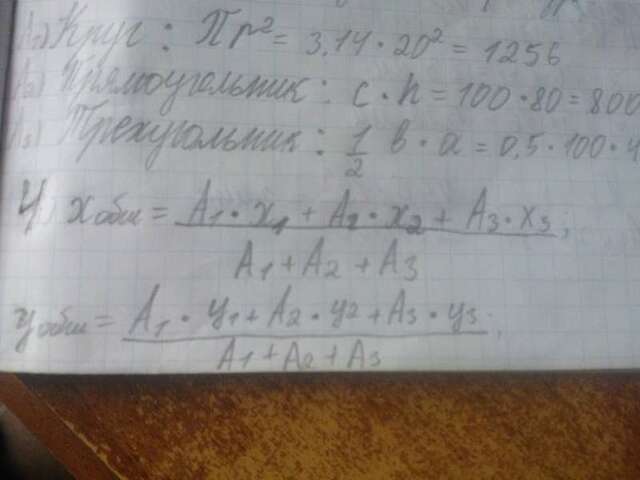 A₁) Круг: Пr² = 3,14 · 20² = 1256
A₂) Прямоугольник: c · h = 100 · 80 = 800
A₃) Треугольник: 1/2 b · a = 0,5 · 100 ·
4) x общ = A₁ · x₁ + A₂ · x₂ + A₃ · x₃ ;
A₁ + A₂ + A₃
y общ = A₁ · y₁ + A₂ · y₂ + A₃ · y₃ ;
A₁ + A₂ + A₃